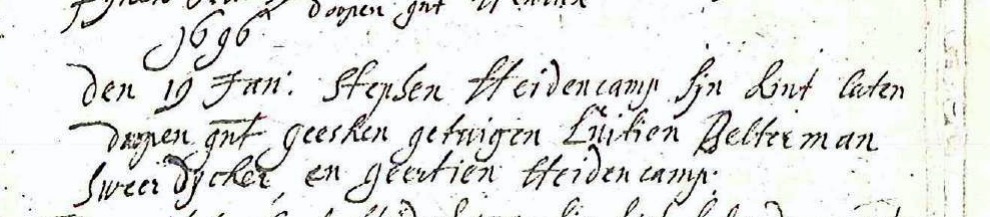 doopen gnt
1696
den 19 Jan: Stephen Heidencamp sijn kint laten
doopen gnt geesken getuigen Luitien Belterman
Sweer Dycker en geertien Heidencamp: